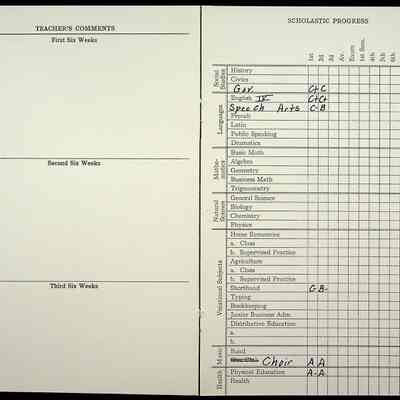 TEACHER'S COMMENTS
First Six Weeks
Second Six Weeks
Third Six Weeks
SCHOLASTIC PROGRESS
1st 2d 3d Av. Exam 1st Sem. 4th 5th 6th
Social Studies
History
Civics
Gov. C+ C
Languages
English IV C+ C+
Speech Arts C- B
French
Latin
Public Speaking
Dramatics
Mathematics
Basic Math
Algebra
Geometry
Business Math
Trigonometry
Natural Science
General Science
Biology
Chemistry
Physics
Vocational Subjects
Home Economics
a. Class
b. Supervised Practice
Agriculture
a. Class
b. Supervised Practice
Shorthand C B-
Typing
Bookkeeping
Junior Business Adm.
Distributive Education
a.
b.
Music
Band
Choir A A
Health
Physical Education A- A
Health